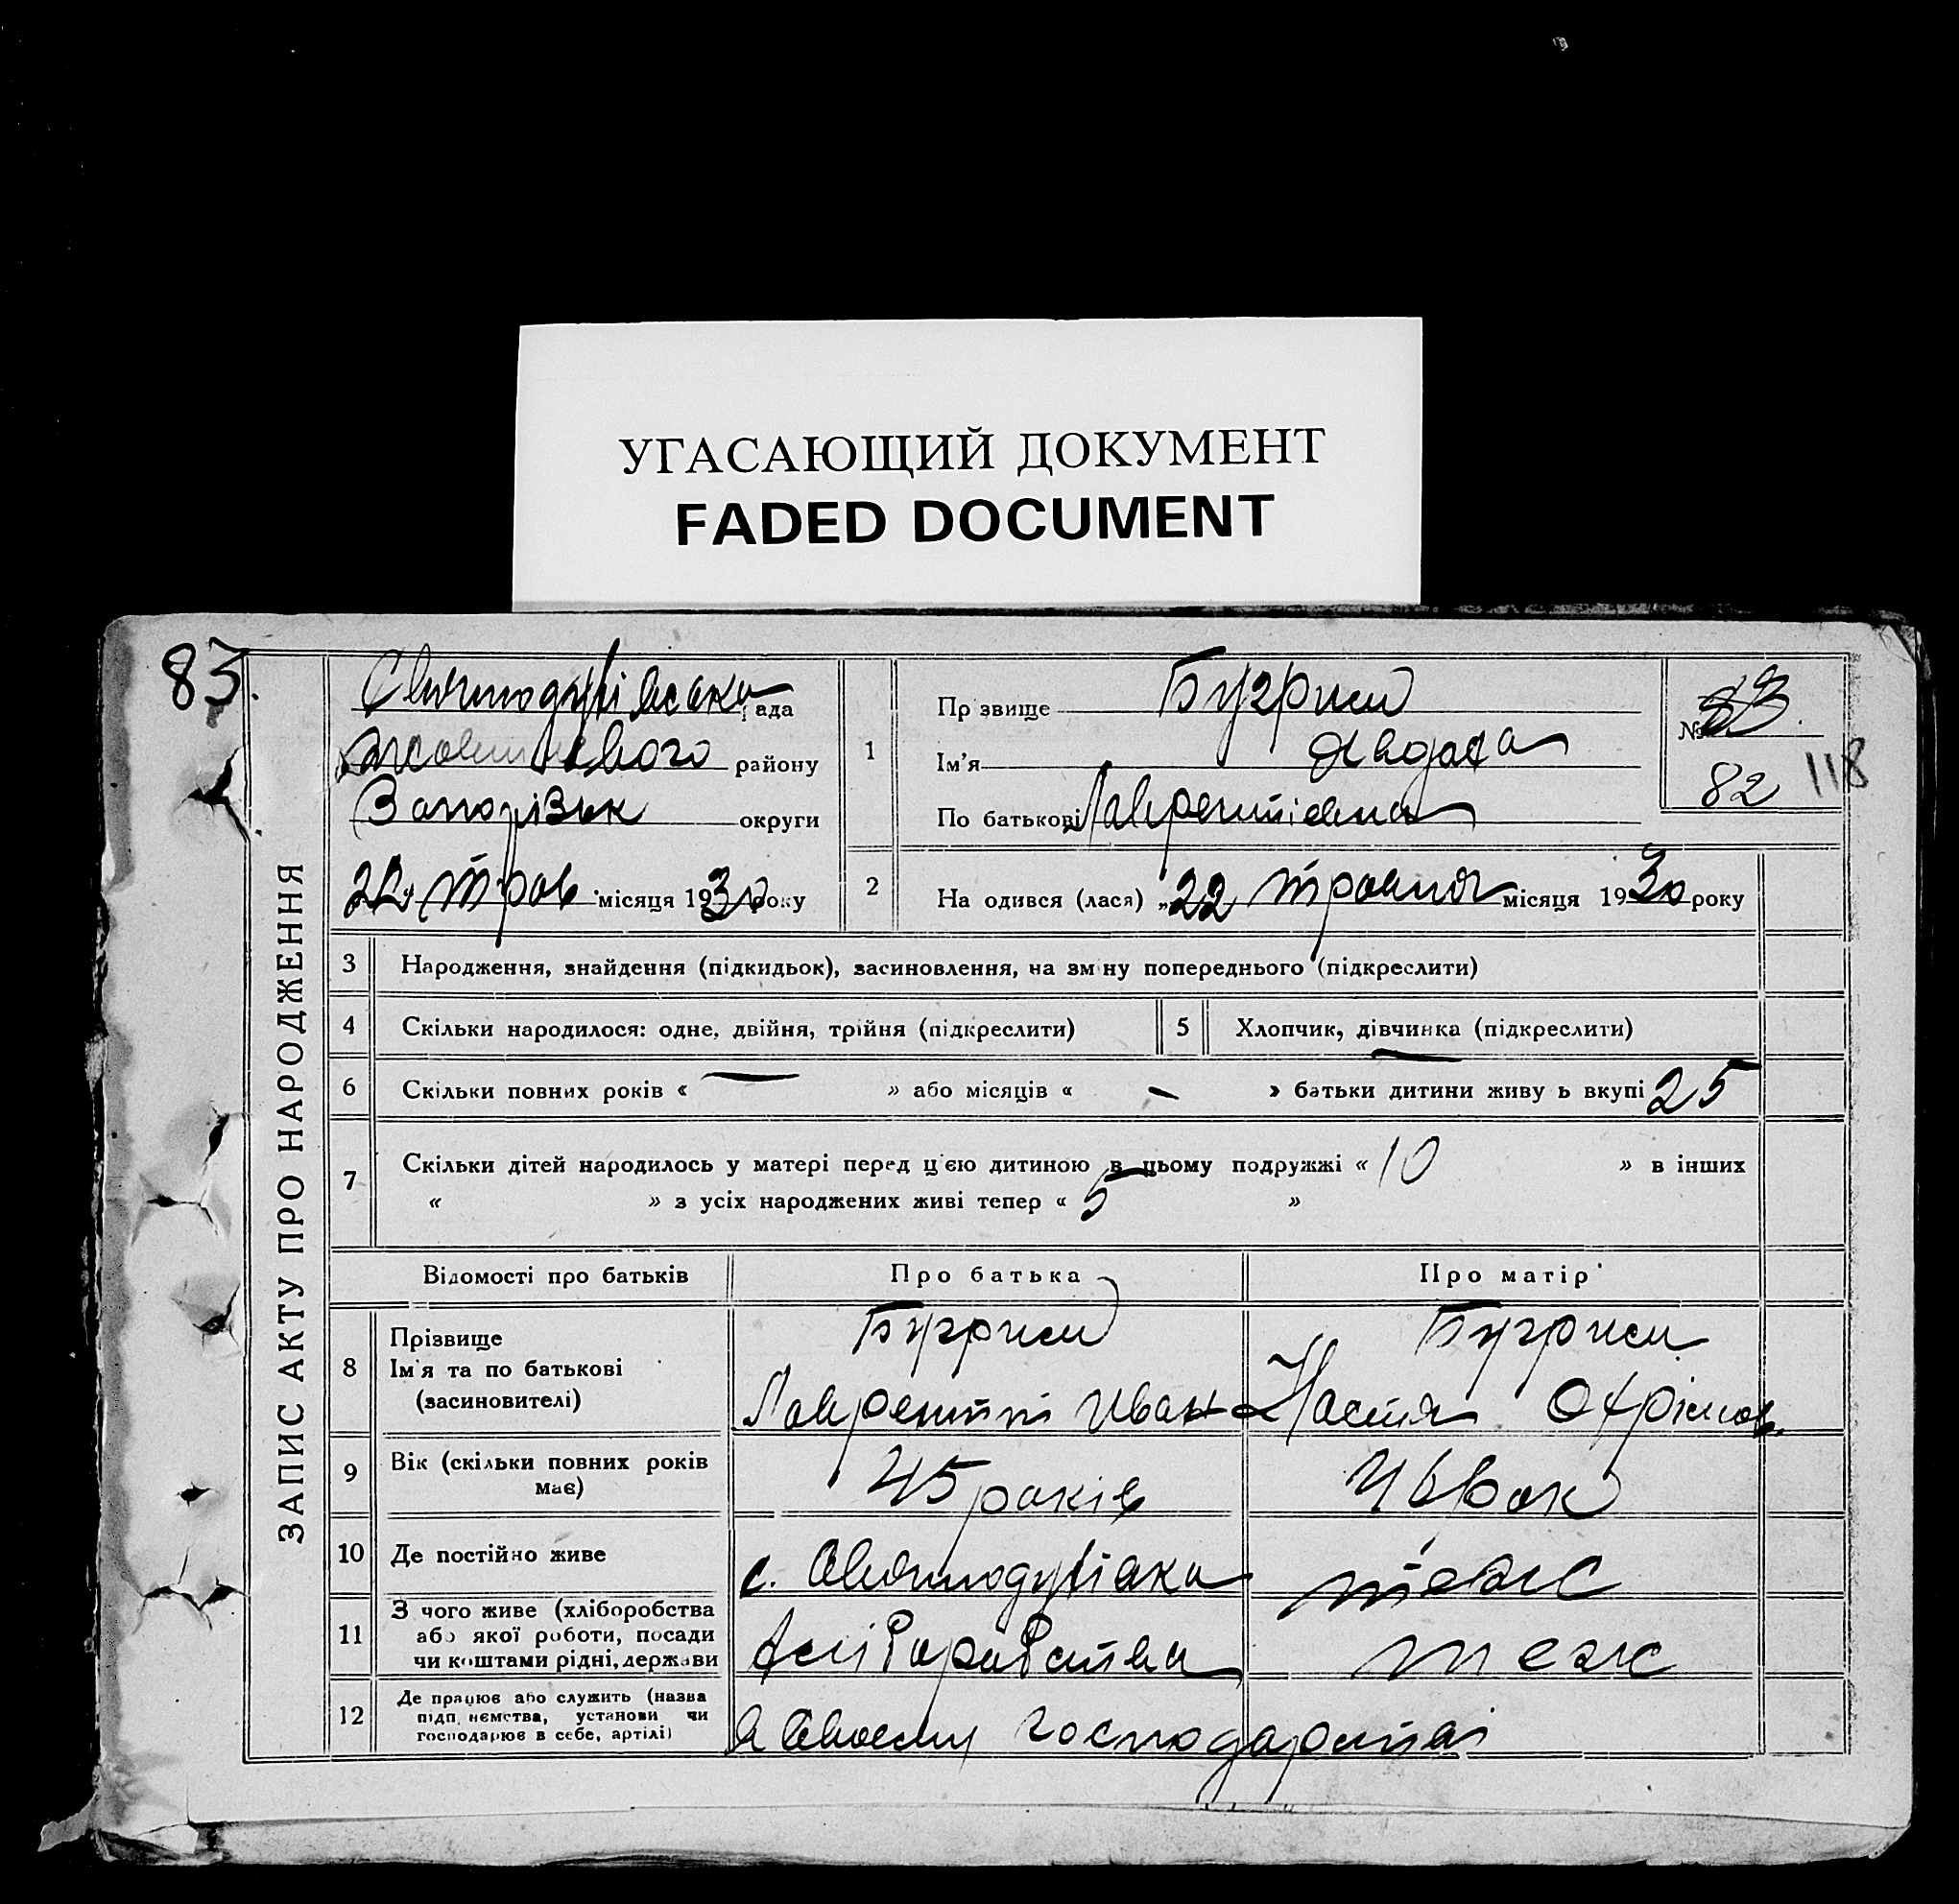 УГАСАЮЩИЙ ДОКУМЕНТ
FADED DOCUMENT
83.
ЗАПИС АКТУ ПРО НАРОДЖЕННЯ
рада
району
Запорізьк округи
трав місяця 1930 року
1
Прізвище Бугрим
Ім'я
По батькові Лаврентіевна
№ 83.
82
118
2 Народився (лася) „22 травня місяця 1930 року
3 Народження, знайдення (підкидьок), засиновлення, на зміну попереднього (підкреслити)
4 Скільки народилося: одне, двійня, трійня (підкреслити) 5 Хлопчик, дівчинка (підкреслити)
6 Скільки повних років « — » або місяців « - » батьки дитини живуть вкупі 25
7 Скільки дітей народилось у матері перед цією дитиною в цьому подружжі « 10 » в інших
« » з усіх народжених живі тепер « 5 »
Відомості про батьків Про батька Про матір'
8 Прізвище
Ім'я та по батькові
(засиновителі)
Бугрим
Лаврентій Иван
Бугрим
Настя Охрімов.
9 Вік (скільки повних років
має)
45 років
10 Де постійно живе
с.
теж
11 З чого живе (хліборобства
або якої роботи, посади
чи коштами рідні, держави
хліборобства
теж
12 Де працює або служить (назва
підприємства, установи чи
господарює в себе, артілі)
в своему господарстві